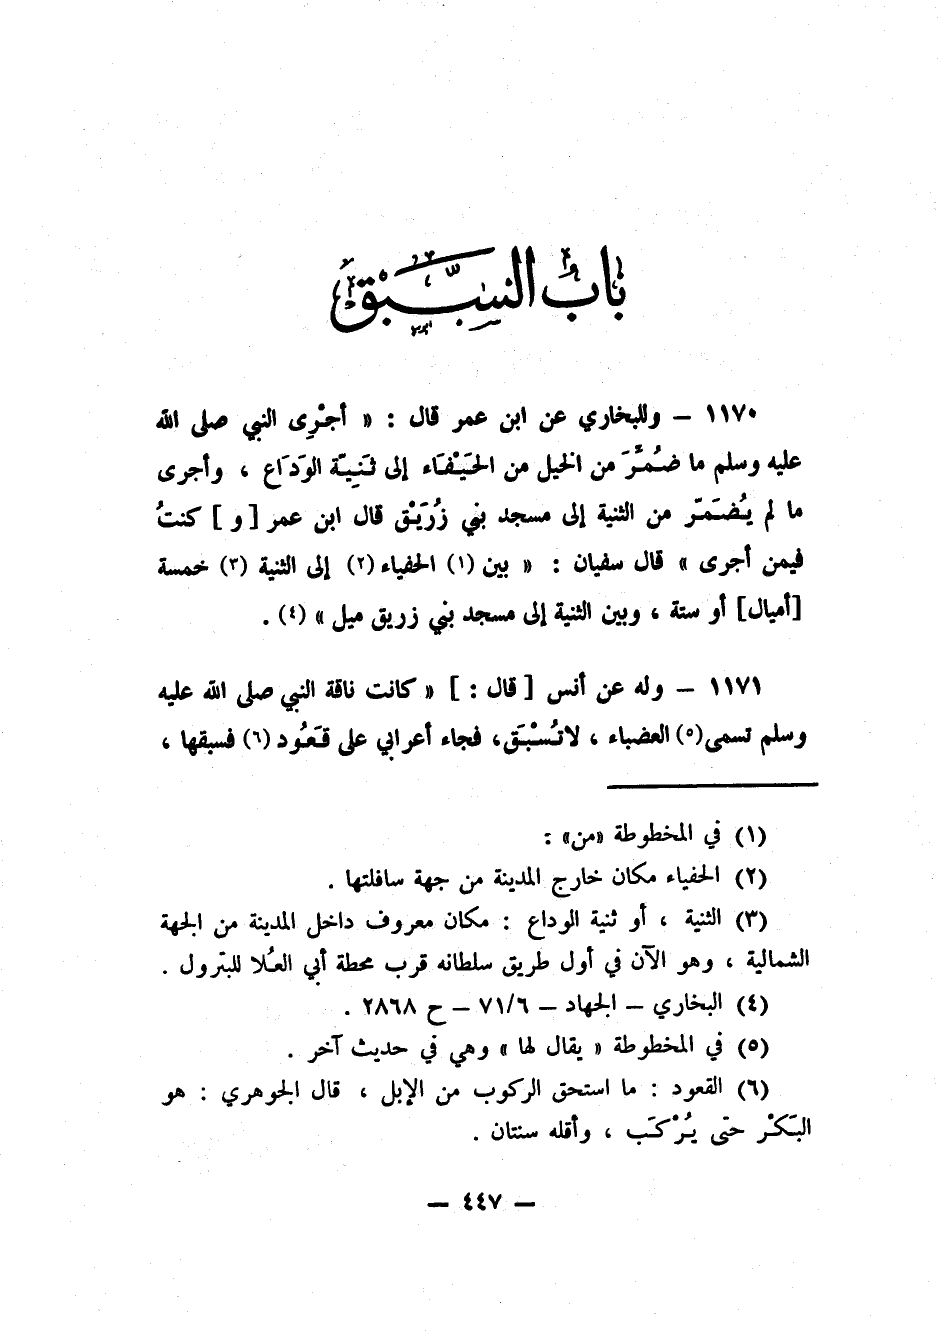 بَابُ السَّبْقِ
١١٧٠ – وللبخاري عن ابن عمر قال : « أجْرِى النبي صلى الله
عليه وسلم ما ضُمَّرَ من الخيل من الحَيْفَاء إلى ثَنِيّة الوَدَاع ، وأجرى
ما لم يُضَمَّر من الثنية إلى مسجد بني زُرَيْق قال ابن عمر [ و ] كنتُ
فيمن أجرى » قال سفيان : « بين (١) الحفياء (٢) إلى الثنية (٣) خمسة
[أميال] أو ستة ، وبين الثنية إلى مسجد بني زريق ميل » (٤) .
١١٧١ – وله عن أنس [ قال : ] « كانت ناقة النبي صلى الله عليه
وسلم تسمى(٥) العضباء ، لاتُسْبَق، فجاء أعرابي على قَعُود (٦) فسبقها ،
(١) في المخطوطة «من» :
(٢) الحفياء مكان خارج المدينة من جهة سافلتها .
(٣) الثنية ، أو ثنية الوداع : مكان معروف داخل المدينة من الجهة
الشمالية ، وهو الآن في أول طريق سلطانه قرب محطة أبي العُلا للبترول .
(٤) البخاري – الجهاد – ٧١/٦ – ح ٢٨٦٨ .
(٥) في المخطوطة « يقال لها » وهي في حديث آخر .
(٦) القعود : ما استحق الركوب من الإبل ، قال الجوهري : هو
البَكْر حتى يُرْكَب ، وأقله سنتان .
– ٤٤٧ –